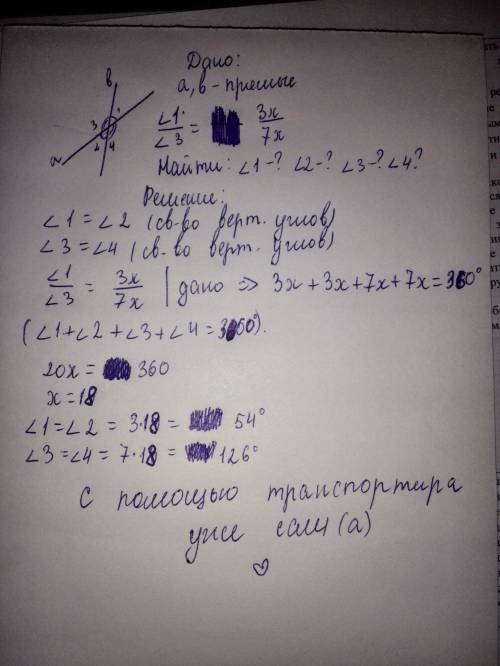 Дано:
а, в - прямые
в
а
3 1
2 4
∠1/∠3 = 3x/7x
Найти: ∠1-? ∠2-? ∠3-? ∠4?
Решение:
∠1 = ∠2 (св-во верт. углов)
∠3 = ∠4 (св-во верт. углов)
∠1/∠3 = 3x/7x | дано => 3x + 3x + 7x + 7x = 360°
(∠1 + ∠2 + ∠3 + ∠4 = 360°).
20x = 360
x = 18
∠1 = ∠2 = 3·18 = 54°
∠3 = ∠4 = 7·18 = 126°
С помощью транспортира
уже сам(а)